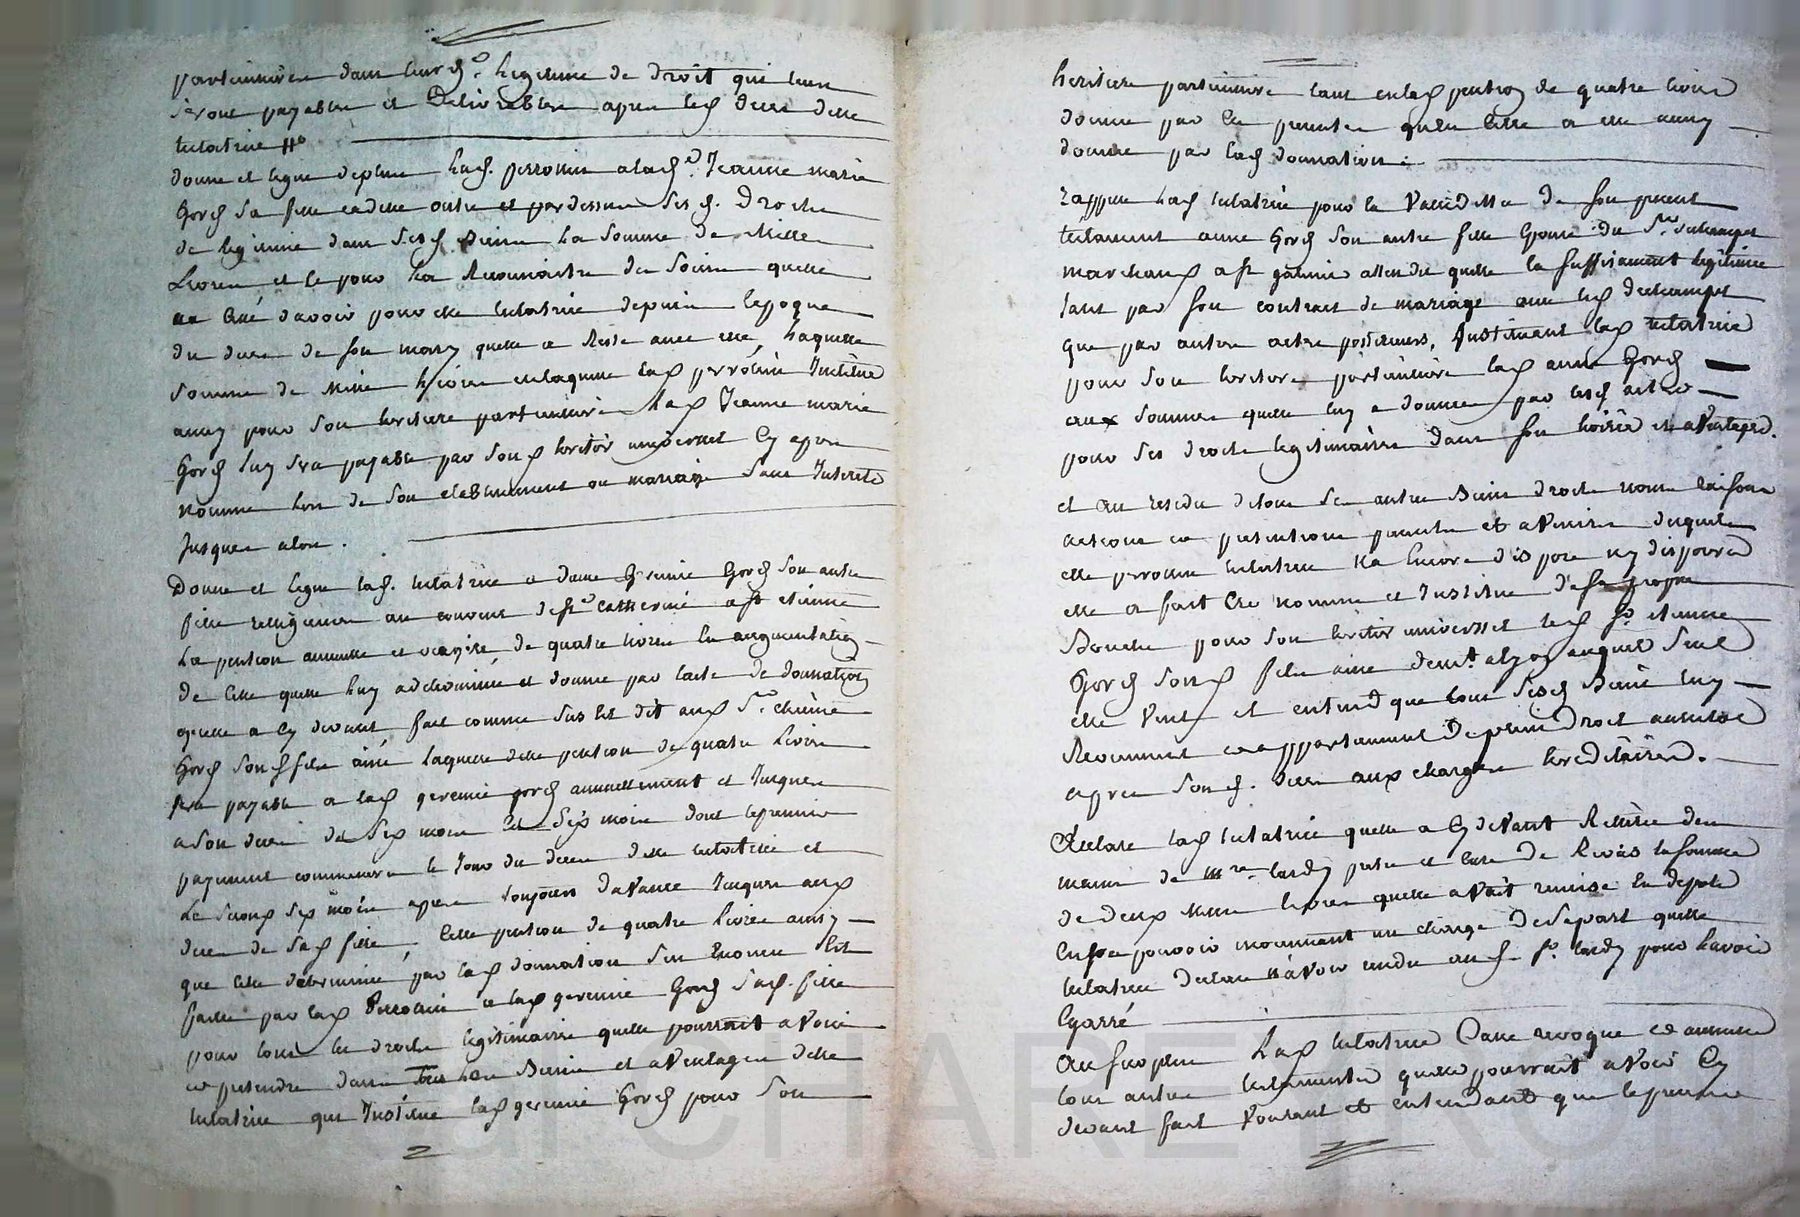 particuliere dans leursd. legitime de droit qui leur
seront payables et delivrables apres led. deces delle
testatrice
donne et legue deplus lad. perronin a lad. Jeanne marie
Gord sa fille cadette outre et pardessus sesd. droits
de legitime dans sesd. biens la somme de Mille
Livres et ce pour la Reconnoitre des soins quelle
a d'avoir pour elle testatrice depuis lepoque
du deces de son mary quelle a Resté avec elle, Laquelle
somme de Mille Livres en laquelle lad. perronin Institue
aussy pour son heritiere particuliere Lad. Jeanne marie
Gord luy sera payable par sond. heritier universel Cy apres
nommé lors de son etablissement ou mariage sans Interets
Jusques alors.
Donne et legue lad. testatrice a dame Gord son autre
fille religieuse au couvent de ste catherine a st etienne
La pention annuelle et viagere de quatre livres En augmentation
de celle quelle luy a et donné par lacte de donnation
quelle a Cy devant fait comme sus Est dit aud. Sr. etienne
Gord sond. fils ainé Laquelle dite pention de quatre Livres
sera payable a lad. gord annuellement et Jusques
a son deces de Six mois En Six mois dont le premier
payement commencera le Jour du deces delle testatrice et
Le second Six mois apres toujours davance Jusques aud.
deces de sad. fille. Cette pention de quatre livres ainsy
que celle determinée par lad. donnation sus Enoncée Est
faitte par lad. Perronin a lad. Gord sad. fille
pour tous les droits legitimaires quelle pourroit avoir
et pretendre dans tous les Biens et aventages delle
testatrice qui Institue lad. Gord pour son
heritiere particuliere tant en lad. pention de quatre livres
donnée par les presentes quen celle a elle aussy
donnée par lad. donnation.
Rappelle Lad. testatrice pour la Validité de son present
testament anne Gord son autre fille Epouse du Sr. deschamps
marchand a st attendu quelle la suffisament legitimée
tant par son contrait de mariage avec led. deschamps
que par autres actes posterieurs, Instituant lad. testatrice
pour son heritiere particuliere lad. anne Gord
aux sommes quelle luy a données par lesd. actes
pour ses droits legitimaires dans son hoirie et aventages.
et Au residu de tous ses autres Biens droits noms raisons
actions et pretentions presents et avenirs desquels
elle perronin testatrice Na Encore disposé ny disposera
elle a fait Cré nommé et Institué de sa propre
Bouche pour son heritier universel led. Sr. etienne
Gord sond. fils ainé demt. auquel Seul
elle Veut et entend que tous sesd. Biens luy
Reviennent et appartiennent de plein Droit aussitot
apres sond. deces aux charges hereditaires.
Declare lad. testatrice quelle a Cy devant Retirée des
mains de mre. lardy pretre et curé de la somme
de deux mille livres quelle avoit remise En depot
En son pouvoir moyennant un charge de depart quelle
testatrice declare n'avoir rendu aud. Sr. lardy pour Lavoir
Egarré
Au surplus Lad. testatrice Casse revoque et annulle
tous autres testamentes quelle pourroit avoir Cy
devant fait Voulant et entendant que le present